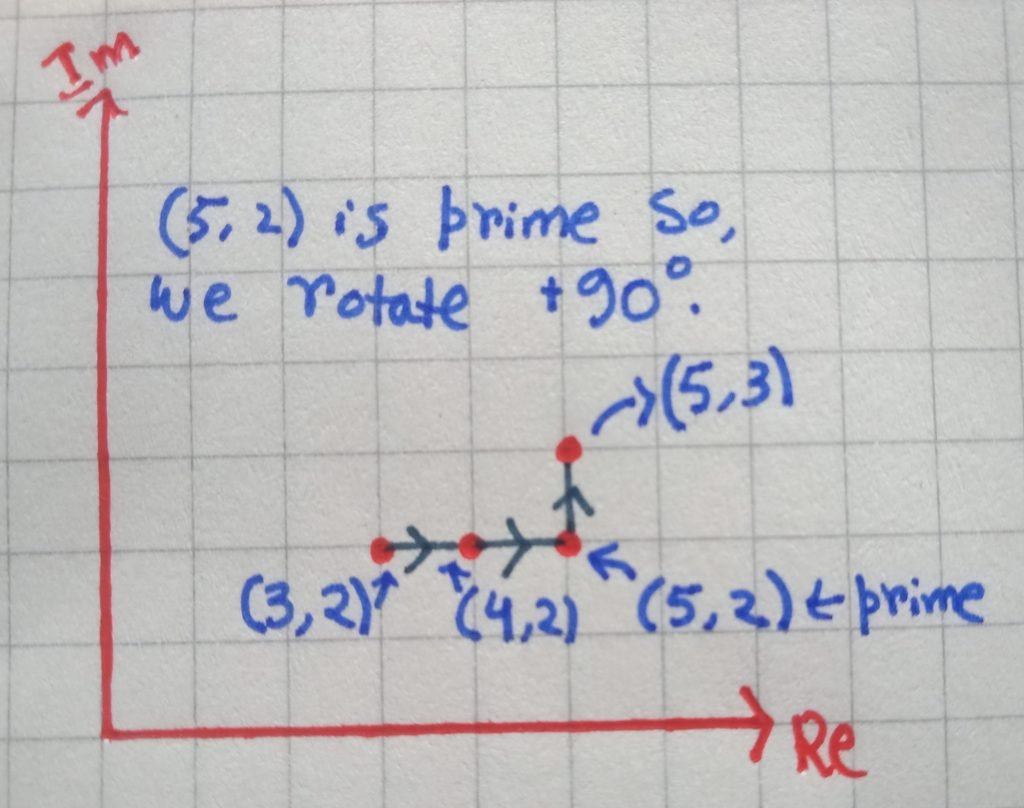 Im
(5,2) is prime So,
we rotate +90°.
→(5,3)
(3,2)↑ ↑(4,2) ← (5,2) ← prime
Re